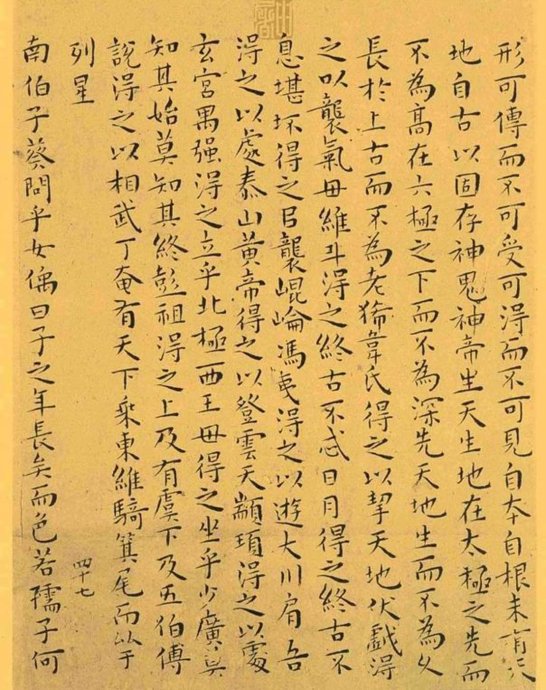 形可傳而不可受可得而不可見自本自根未有天
地自古以固存神鬼神帝生天生地在太極之先而
不為高在六極之下而不為深先天地生而不為久
長於上古而不為老狶韋氏得之以挈天地伏戲得
之以襲氣母維斗得之終古不忒日月得之終古不
息堪坏得之以襲崐崘馮夷得之以遊大川肩吾
得之以處泰山黃帝得之以登雲天顓頊得之以處
玄宮禺强得之立乎北極西王母得之坐乎少廣莫
知其始莫知其終彭祖得之上及有虞下及五伯傅
說得之以相武丁奄有天下乘東維騎箕尾而比于
列星
四十七
南伯子葵問乎女偊曰子之年長矣而色若孺子何